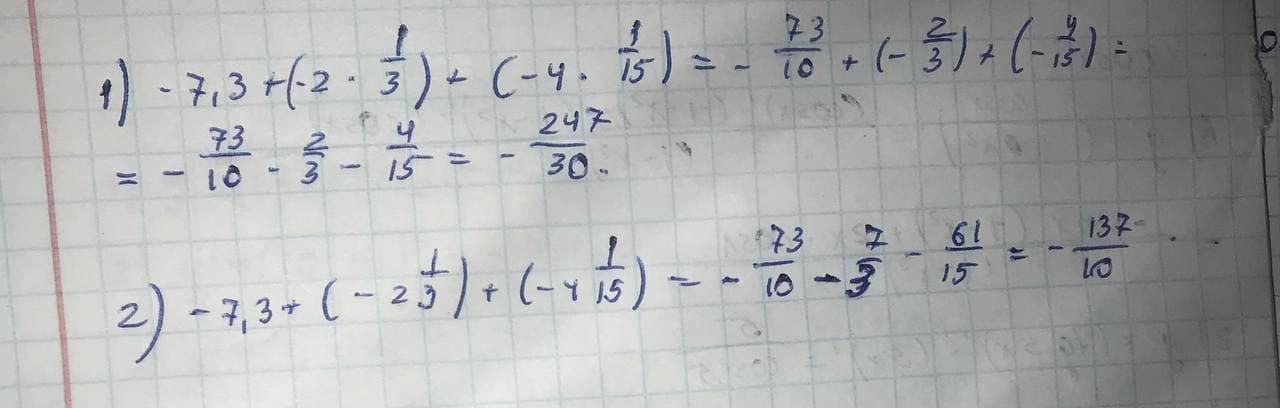 1) - 7,3 + (-2 · 1/3) + (-4 · 1/15) = - 73/10 + (- 2/3) + (- 4/15) =
= - 73/10 - 2/3 - 4/15 = - 247/30.
2) - 7,3 + (- 2 1/3) + (-4 1/15) = - 73/10 - 7/3 - 61/15 = - 137/10